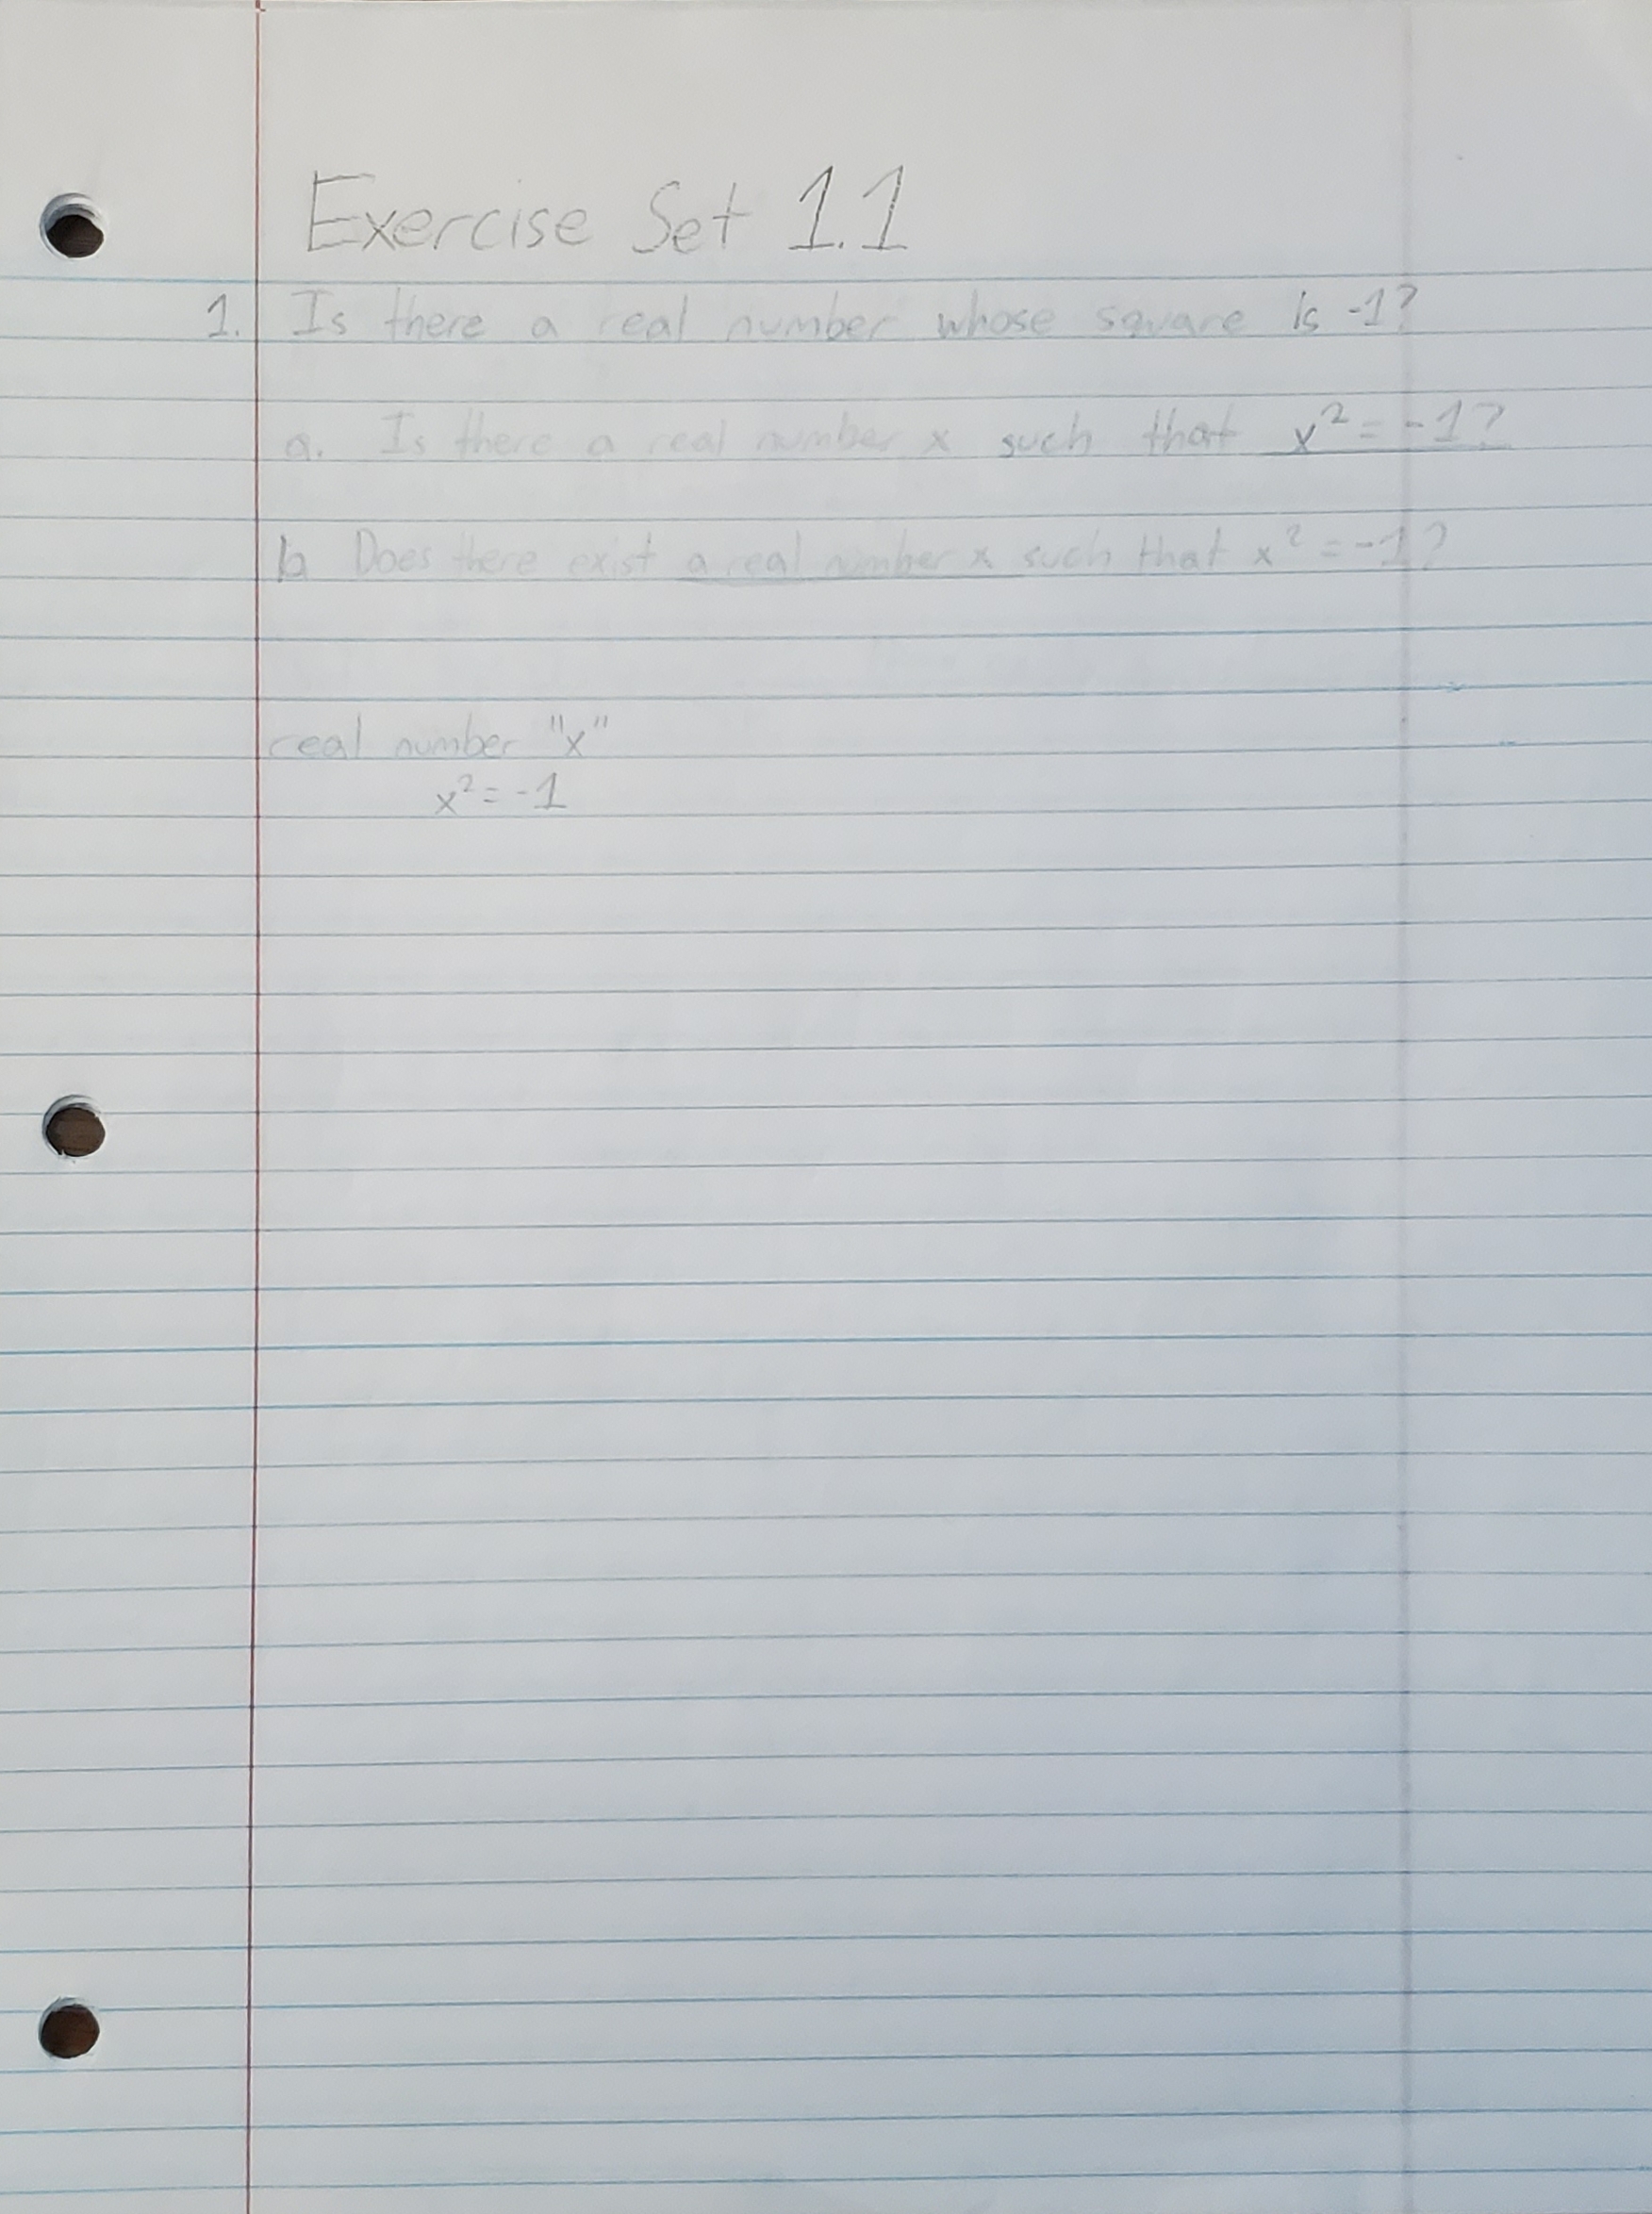 Exercise Set 1.1
1. Is there a real number whose square is -1?
a. Is there a real number x such that x² = -1?
b Does there exist a real number x such that x² = -1?
real number "x"
x² = -1